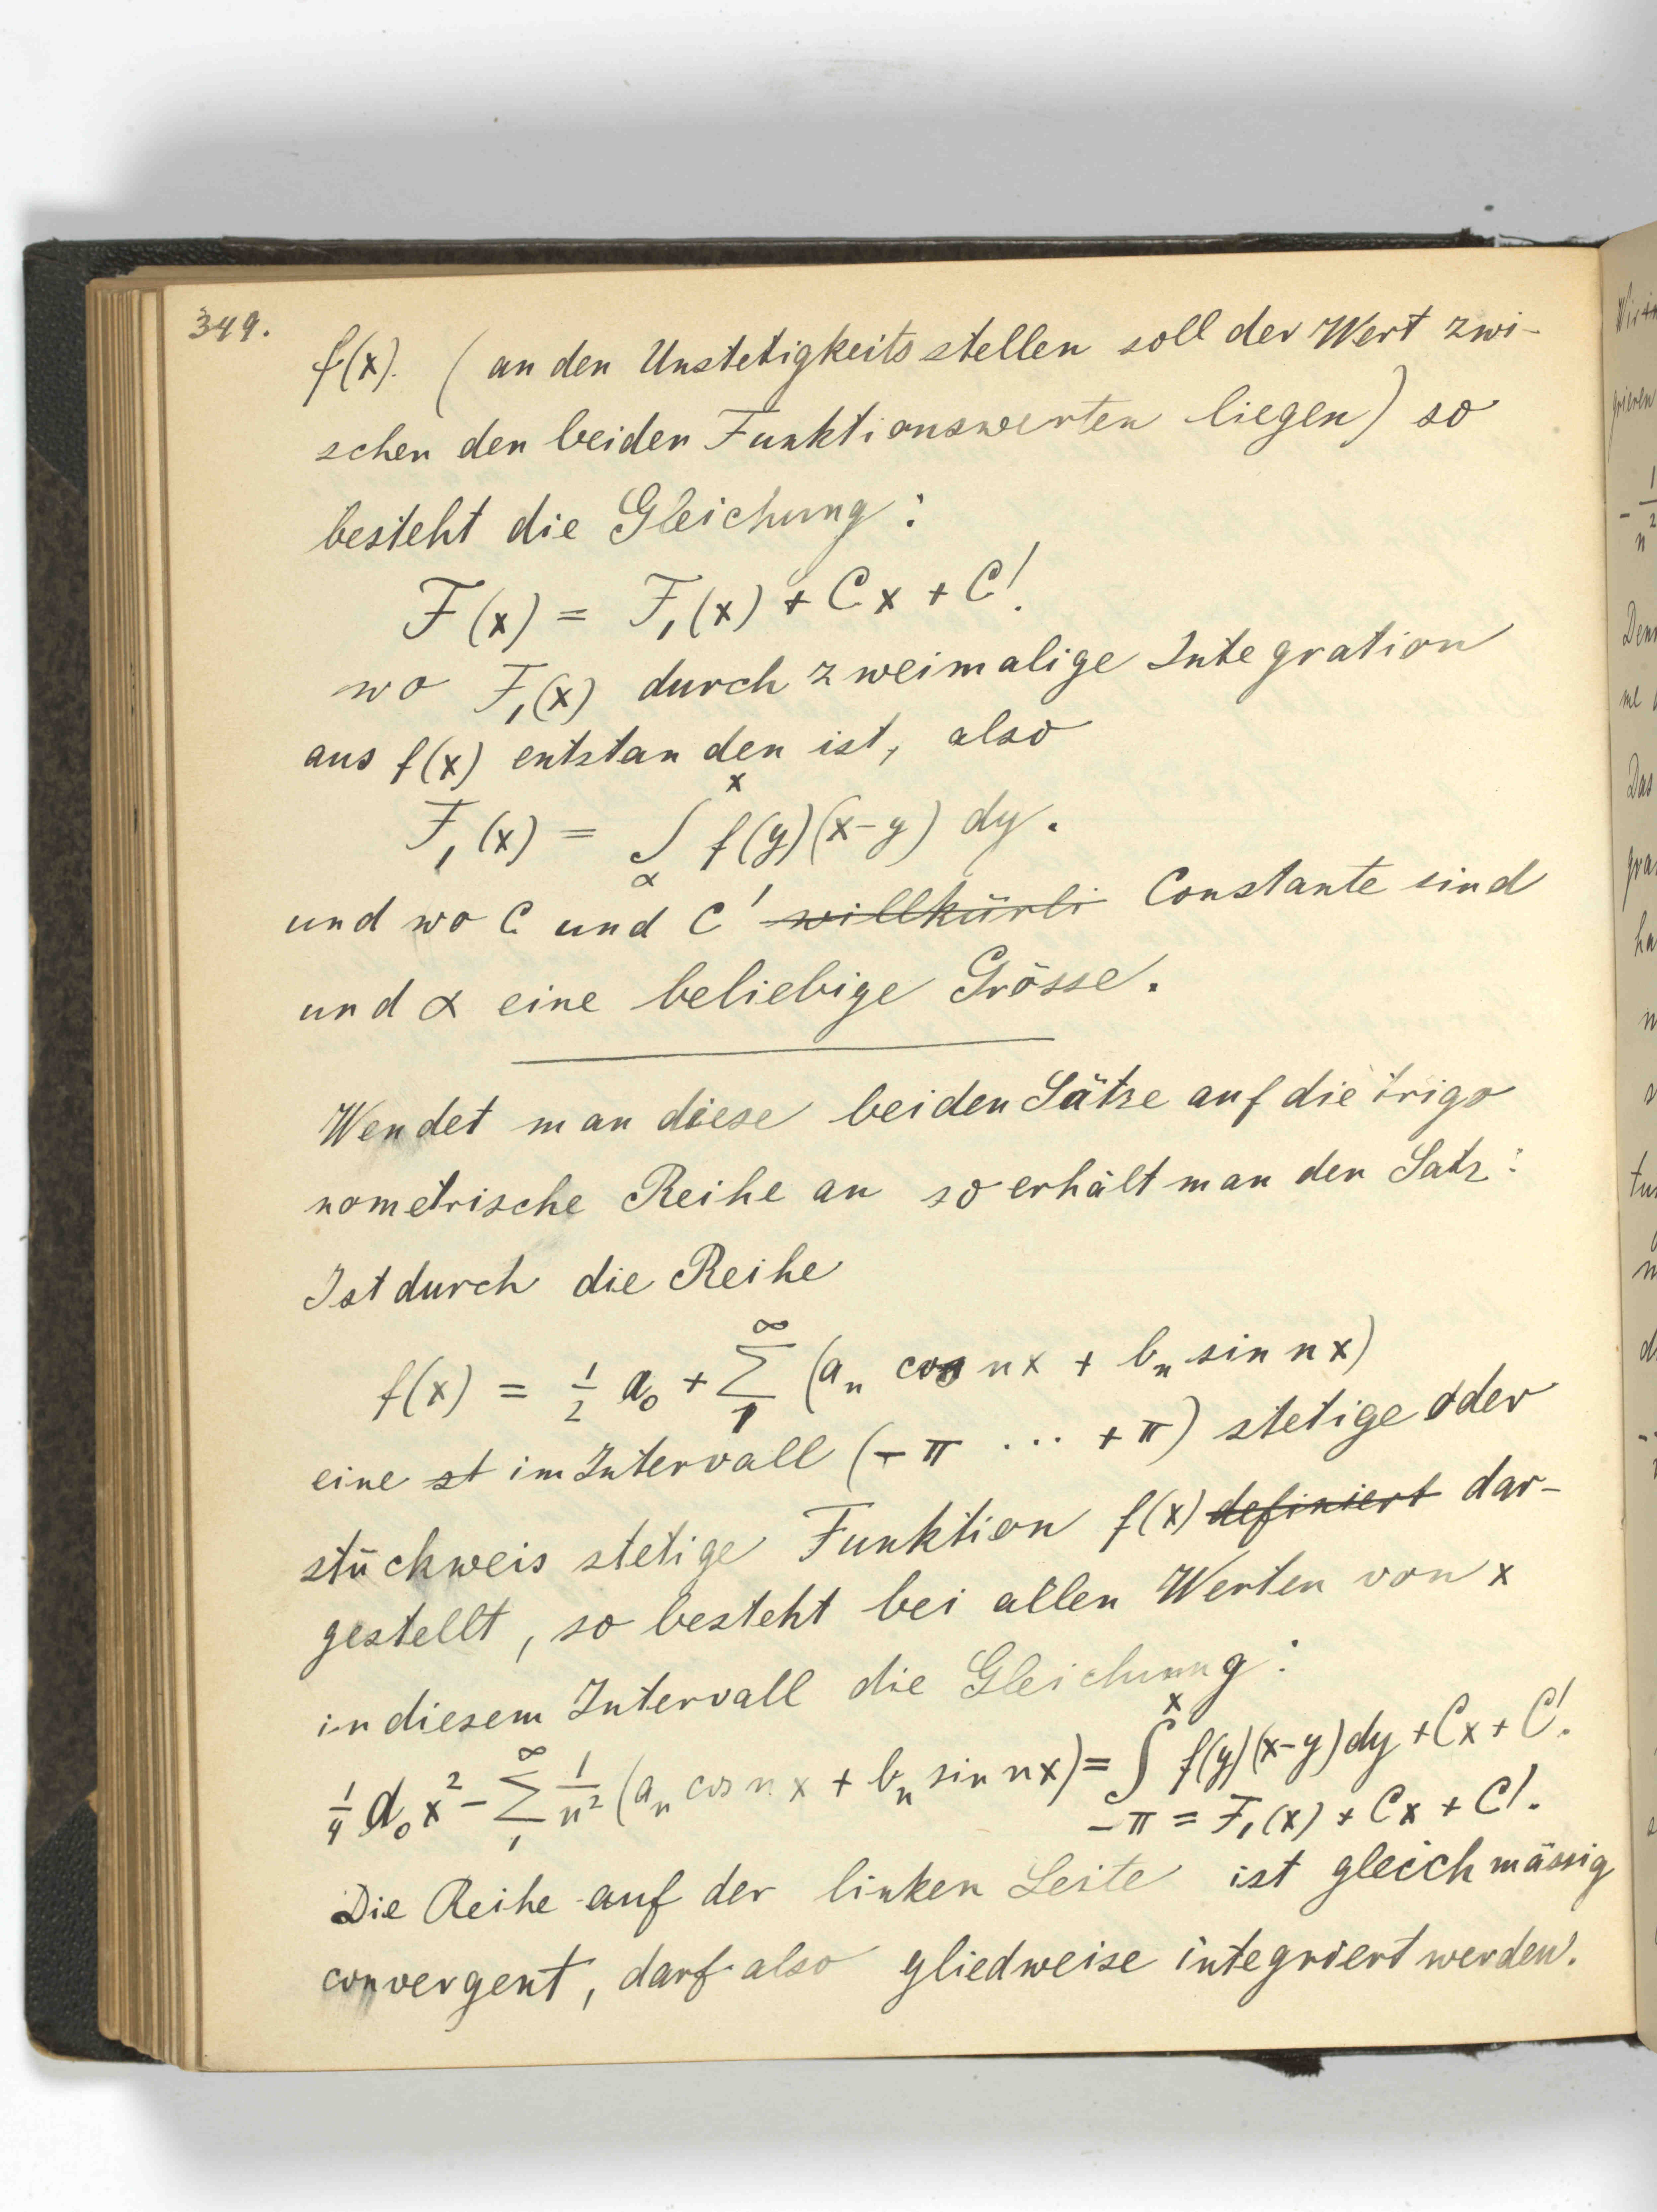 349.
f(x). (an den Unstetigkeitsstellen soll der Wert zwi-
schen den beiden Funktionswerten liegen) so
besteht die Gleichung:
F(x) = F₁(x) + Cx + C'.
wo F₁(x) durch zweimalige Integration
aus f(x) entstanden ist, also
F₁(x) = ∫_α^x f(y)(x-y) dy.
und wo C und C' ~~willkürli~~ Constante sind
und α eine beliebige Grösse.
Wendet man diese beiden Sätze auf die trigo
nometrische Reihe an so erhält man den Satz:
Ist durch die Reihe
f(x) = 1/2 a₀ + ∑_1^∞ (aₙ cos nx + bₙ sin nx)
eine ~~st~~ im Intervall (-π ... +π) stetige oder
stückweis stetige Funktion f(x) ~~definiert~~ dar-
gestellt, so besteht bei allen Werten von x
in diesem Intervall die Gleichung:
1/4 a₀ x² - ∑_1^∞ 1/n² (aₙ cos nx + bₙ sin nx) = ∫_-π^x f(y)(x-y) dy + Cx + C'.
= F₁(x) + Cx + C'.
Die Reihe auf der linken Seite ist gleichmässig
convergent, darf also gliedweise integriert werden.